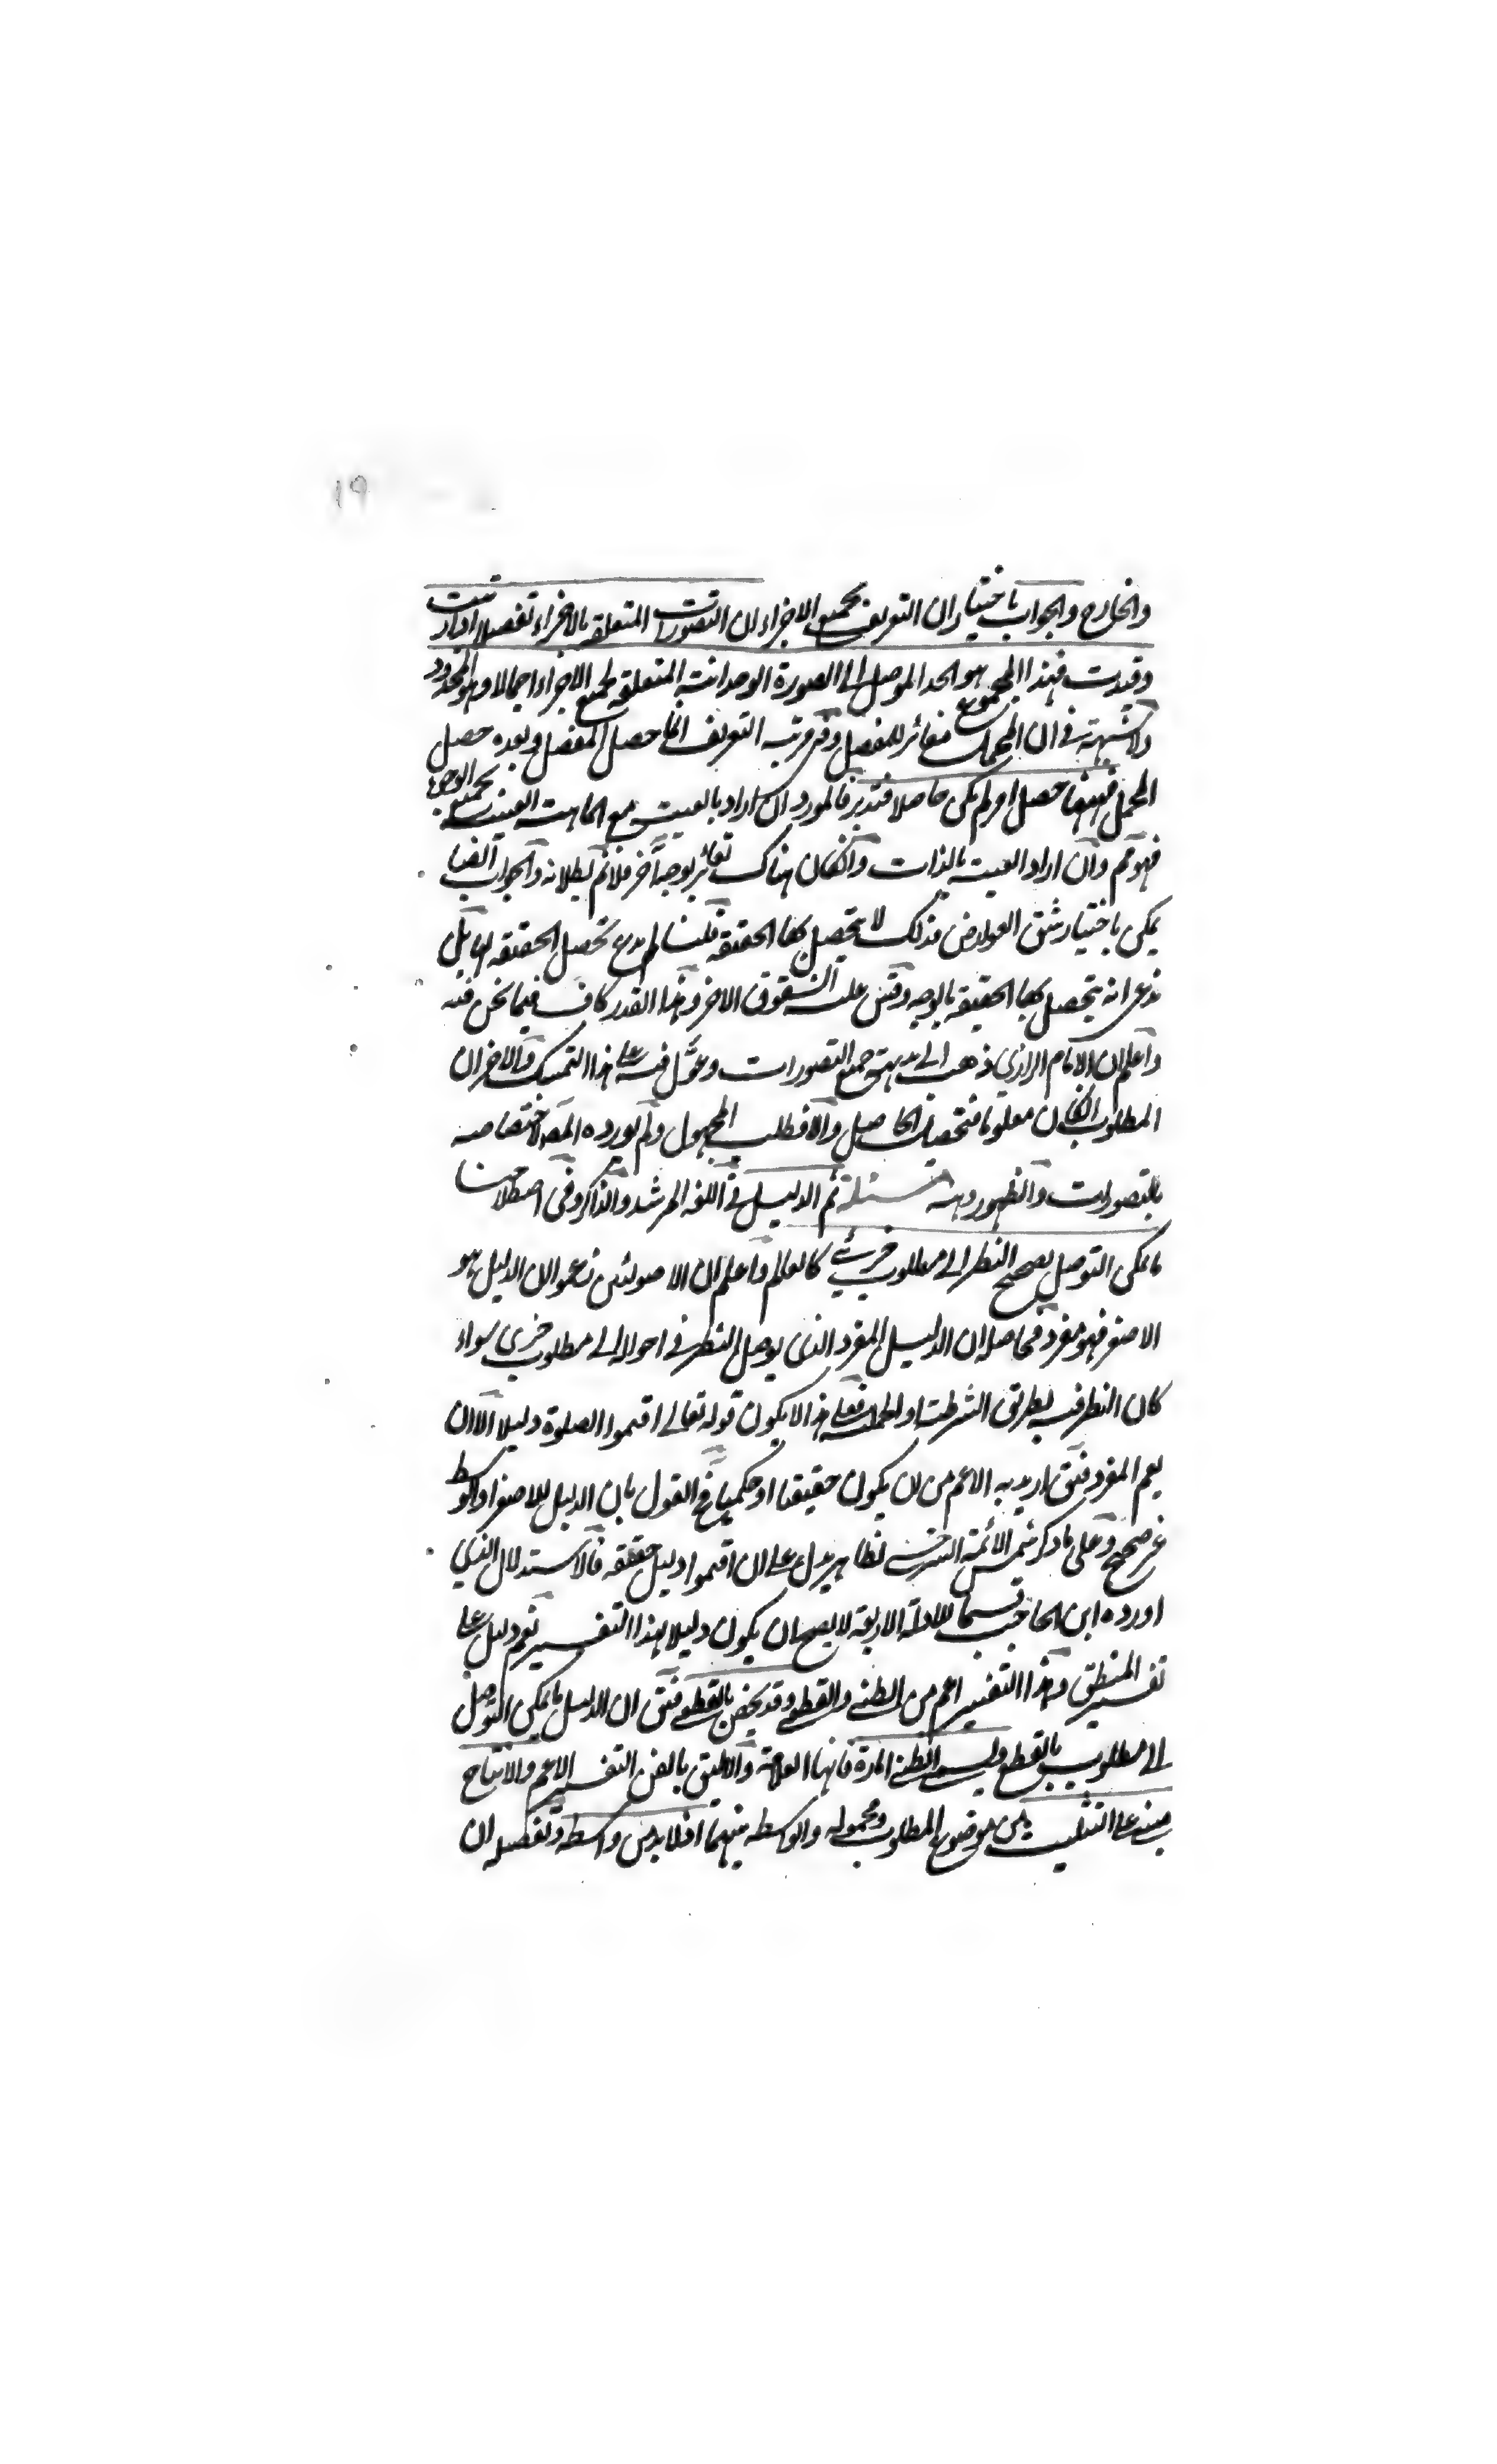 ١٩
والخارج والجواب باختيار ان التعريف بجميع الاجزاء ان التصورات المتعلقه بالاجزاء تفصيلا اذا رتبت
وقيدت فهذا المجموع هو الحد الموصل الى الصورة الوحدانية المتعلقه بجميع الاجزاء اجمالا وهو المحدود
ولا شبهة في ان المجمل مغائر للمفصل وفي مرتبه التعريف انما حصل المفصل وبعده حصل
المجمل فههنا حصل امر لم يكن حاصلا فتدبر فالمورد ان اراد بالعينية مع الماهية العينية بجميع الوجوه
فهو مم وان اراد العينية بالذات وانكان هناك تغائر بوجه آخر فلا نم بطلانه والجواب ايضا
يمكن باختيار شق العوارض قولك لا يتحصل بها الحقيقه قلنا لم ندع تحصل الحقيقه بها بل
ندعى انه يتحصل بها الحقيقه بالوجه وقس عليه الشقوق الاخر وهذا القدر كاف فيما نحن فيه
واعلم ان الامام الرازي ذهب الى بديهية جميع التصورات وعول فيه على هذا التمسك والاخر ان
المطلوب انكان معلوما فتحصيل الحاصل والا فطلب المجهول ولم يورده المصـ لاختصاصه
بالتصورات والظهور وهنه مسئلة ثم الدليل في اللغه المرشد والذاكر وفى اصطلاحنا
ما يمكن التوصل بصحيح النظر الى مطلوب خبرئ كالعالم واعلم ان الاصوليين زعموا ان الدليل هو
الاصغر فهو مفرد فحاصله ان الدليل المفرد الذى يوصل النظر في احواله الى مطلوب خبرى سواء
كان النظر فيه بطريق الشرطية او الحملية فعلى هذا لا يكون قوله تعالى اقيموا الصلوة دليلا الا ان
يعم المفرد فيق اريد به الاعم من ان يكون حقيقيا او حكميا فح القول بان الدليل للاصغر او الاوسط
غير صحيح وعلى ما ذكر شمس الأئمة السرخسي نظاهر يدل على ان اقيموا دليل حقيقه فالاستدلال الذي
اورده ابن الحاجب قسما للادلة الاربعة لا يصح ان يكون دليلا بهذا التفسير نعم دليل على
تفسير المنطق وهذا التفسير اعم من الظني والقطعي وقد يخص بالقطعي فيق ان الدليل ما يمكن التوصل
الى مطلوب بالقطع ويسمى الظني امارة فانها العلامة والاليق بالفن التفسير الاعم والانتاج
مبني على التثليث من موضوع المطلوب ومحموله والواسطه بينهما اذ لا بد من واسطه وتفصيله ان